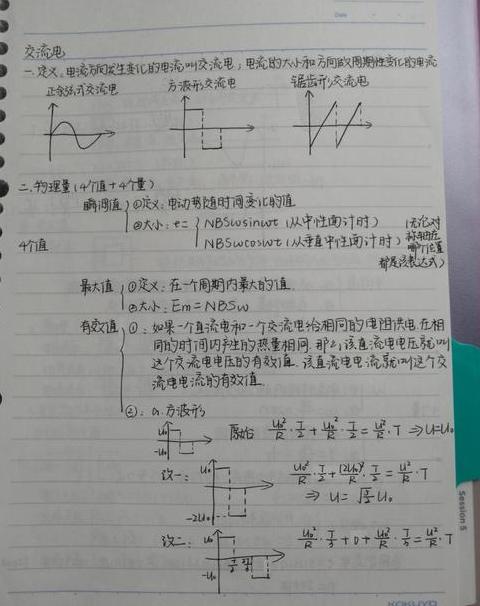 交流电
一.定义:电流方向发生变化的电流叫交流电;电流的大小和方向做周期性变化的电流
正弦式交流电 方波形交流电 锯齿形交流电
二.物理量(4个值+4个量)
4个值
瞬时值 ①定义:电动势随时间变化的值
②大小:e= NBSωsinωt(从中性面计时)
NBSωcosωt(从垂直中性面计时)
(无论对
称轴在
哪个位置
都是该表达式)
最大值 ①定义:在一个周期内最大的值
②大小:Em=NBSω
有效值 ①:如果一个直流电和一个交流电给相同的电阻供电,在相
同的时间内产生的热量相同.那么,该直流电电压就叫
这个交流电电压的有效值.该直流电电流就叫这个交
流电电流的有效值
②:a.方波形
U₀ -U₀ 原始 U₀²/R·T/2+U₀²/R·T/2=U²/R·T ⇒U=U₀
改一: U₀ -2U₀ U₀²/R·T/2+(2U₀)²/R·T/2=U²/R·T
⇒ U=√(5/2)U₀
改二: U₀ -U₀ T/3 2T/3 U₀²/R·T/3+0+U₀²/R·T/3=U²/R·T
Session 5
KOKUYO
Date